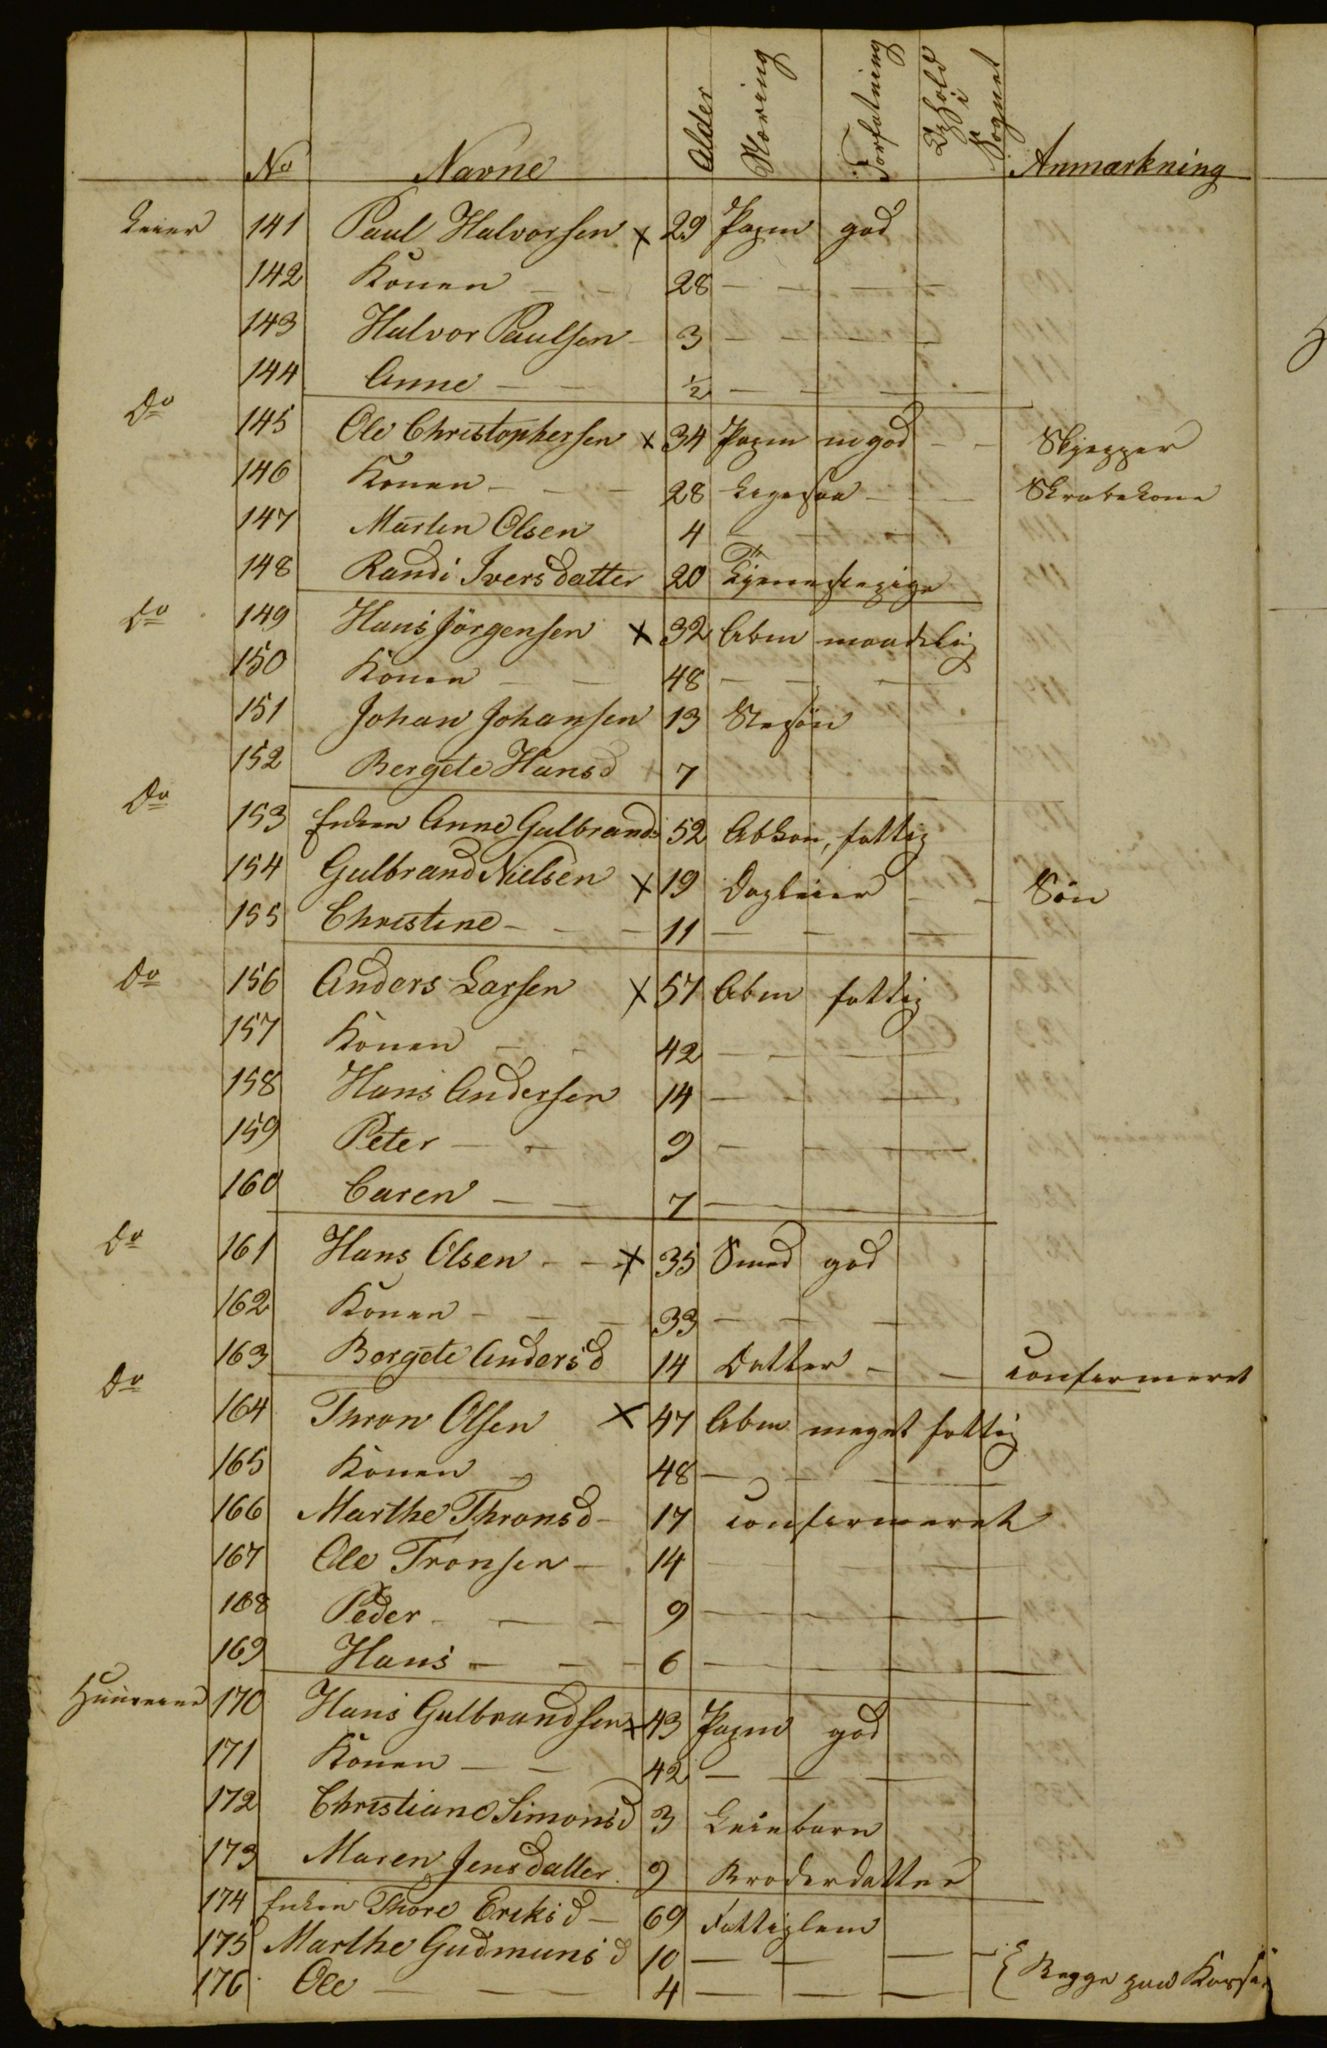 No Navne Alder Næring Forfatning Ophold i Sognet Anmærkning
Leier 141 Paul Halvorsen x 29 Papm god
142 Konen - - 28 - - - -
143 Halvor Paulsen - 3 - - - -
144 Anne - - ½ - - - -
Do 145 Ole Christophersen x 34 Papm m god - - Skjepper
146 Konen - - - 28 - - - Skrabekone
147 Marten Olsen 4 - - -
148 Randi Iversdatter 20 Tjenestepige
Do 149 Hans Jörgensen x 32 Abm maadelig
150 Konen - - 48 - - - -
151 Johan Johansen 13 Stesön
152 Bergete Hansd 7
Do 153 Enken Anne Gulbrands 52 Abkon, fattig
154 Gulbrand Nielsen x 19 Dagleier - - Sön
155 Christine - - - 11 - - -
Do 156 Anders Larsen x 57 Abm fattig
157 Konen - - 42 - - - -
158 Hans Andersen 14 - - - -
159 Peter - - 9 - - - -
160 Caren - - 7 - - - -
Do 161 Hans Olsen - - x 35 Smed god
162 Konen - - - 33 - - -
163 Bergete Andersd 14 Datter - - confirmeret
Do 164 Thron Olsen x 47 Abm meget fattig
165 Konen - 48 - - - -
166 Marthe Thronsd - 17 confirmeret
167 Ole Tronsen - 14 - - - -
168 Peder - - - 9 - - - -
169 Hans - - - 6 - - - -
Huuseier 170 Hans Gulbrandsen x 43 Papm god
171 Konen - - 42 - - -
172 Christiane Simonsd 3 Leiebarn
173 Maren Jensdatter 9 Broderdatter
174 Enken Thore Eriksd - 69 Fattiglem
175 Marthe Gudmunsd 10 - - - -
176 Ole - - - 4 - - - { Begge paa